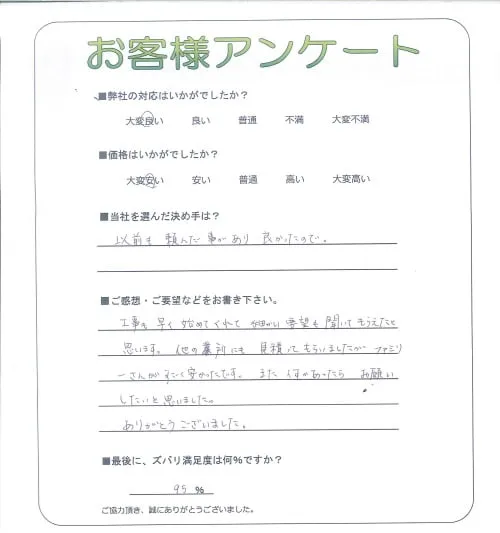 お客様アンケート
■弊社の対応はいかがでしたか？
大変良い 良い 普通 不満 大変不満
■価格はいかがでしたか？
大変安い 安い 普通 高い 大変高い
■当社を選んだ決め手は？
以前も 頼んだ 事があり 良かったので。
■ご感想・ご要望などをお書き下さい。
工事も 早く 始めてくれて 細かい 要望も 聞いて もらえたと
思います。 他の 業所にも 見積って もらいましたが ファミリ
ーさんが すごく 安かったです。 また 何かあったら お願い
したいと思いました。
ありがとうございました。
■最後に、ズバリ満足度は何％ですか？
95 ％
ご協力頂き、誠にありがとうございました。